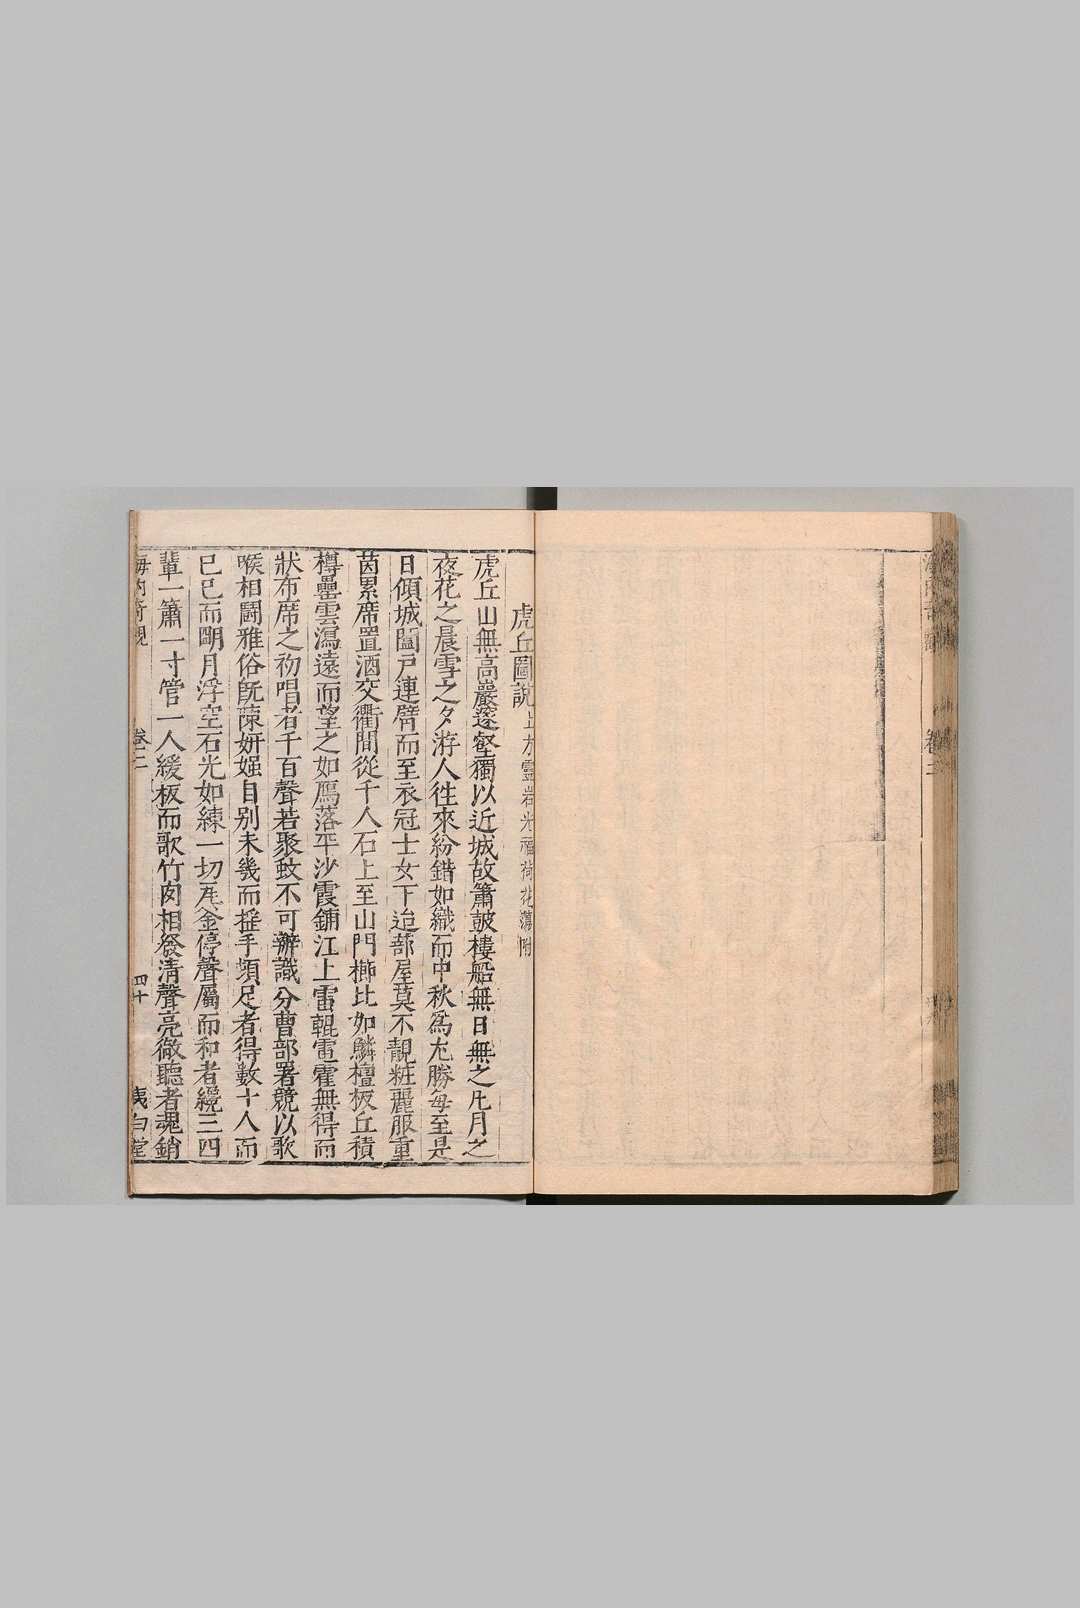 虎丘圖說上方靈岩光福荷花蕩附
虎丘山無高巖邃壑獨以近城故簫鼓樓船無日無之凡月之
夜花之晨雪之夕游人徃來紛錯如織而中秋為尤勝每至是
日傾城闔戶連臂而至衣冠士女下迨蔀屋莫不靚粧麗服重
茵累席置酒交衢間從千人石上至山門櫛比如鱗檀板丘積
樽罍雲瀉遠而望之如鴈落平沙霞鋪江上雷輥電霍無得而
狀布席之初唱者千百聲若聚蚊不可辨識分曹部署競以歌
喉相鬭雅俗旣陳妍媸自別未幾而搖手頓足者得數十人而
已已而明月浮空石光如練一切瓦釜停聲屬而和者纔三四
輩一簫一寸管一人緩板而歌竹肉相發清聲亮徹聽者魂銷
海內奇觀 卷二 四十 夷白堂